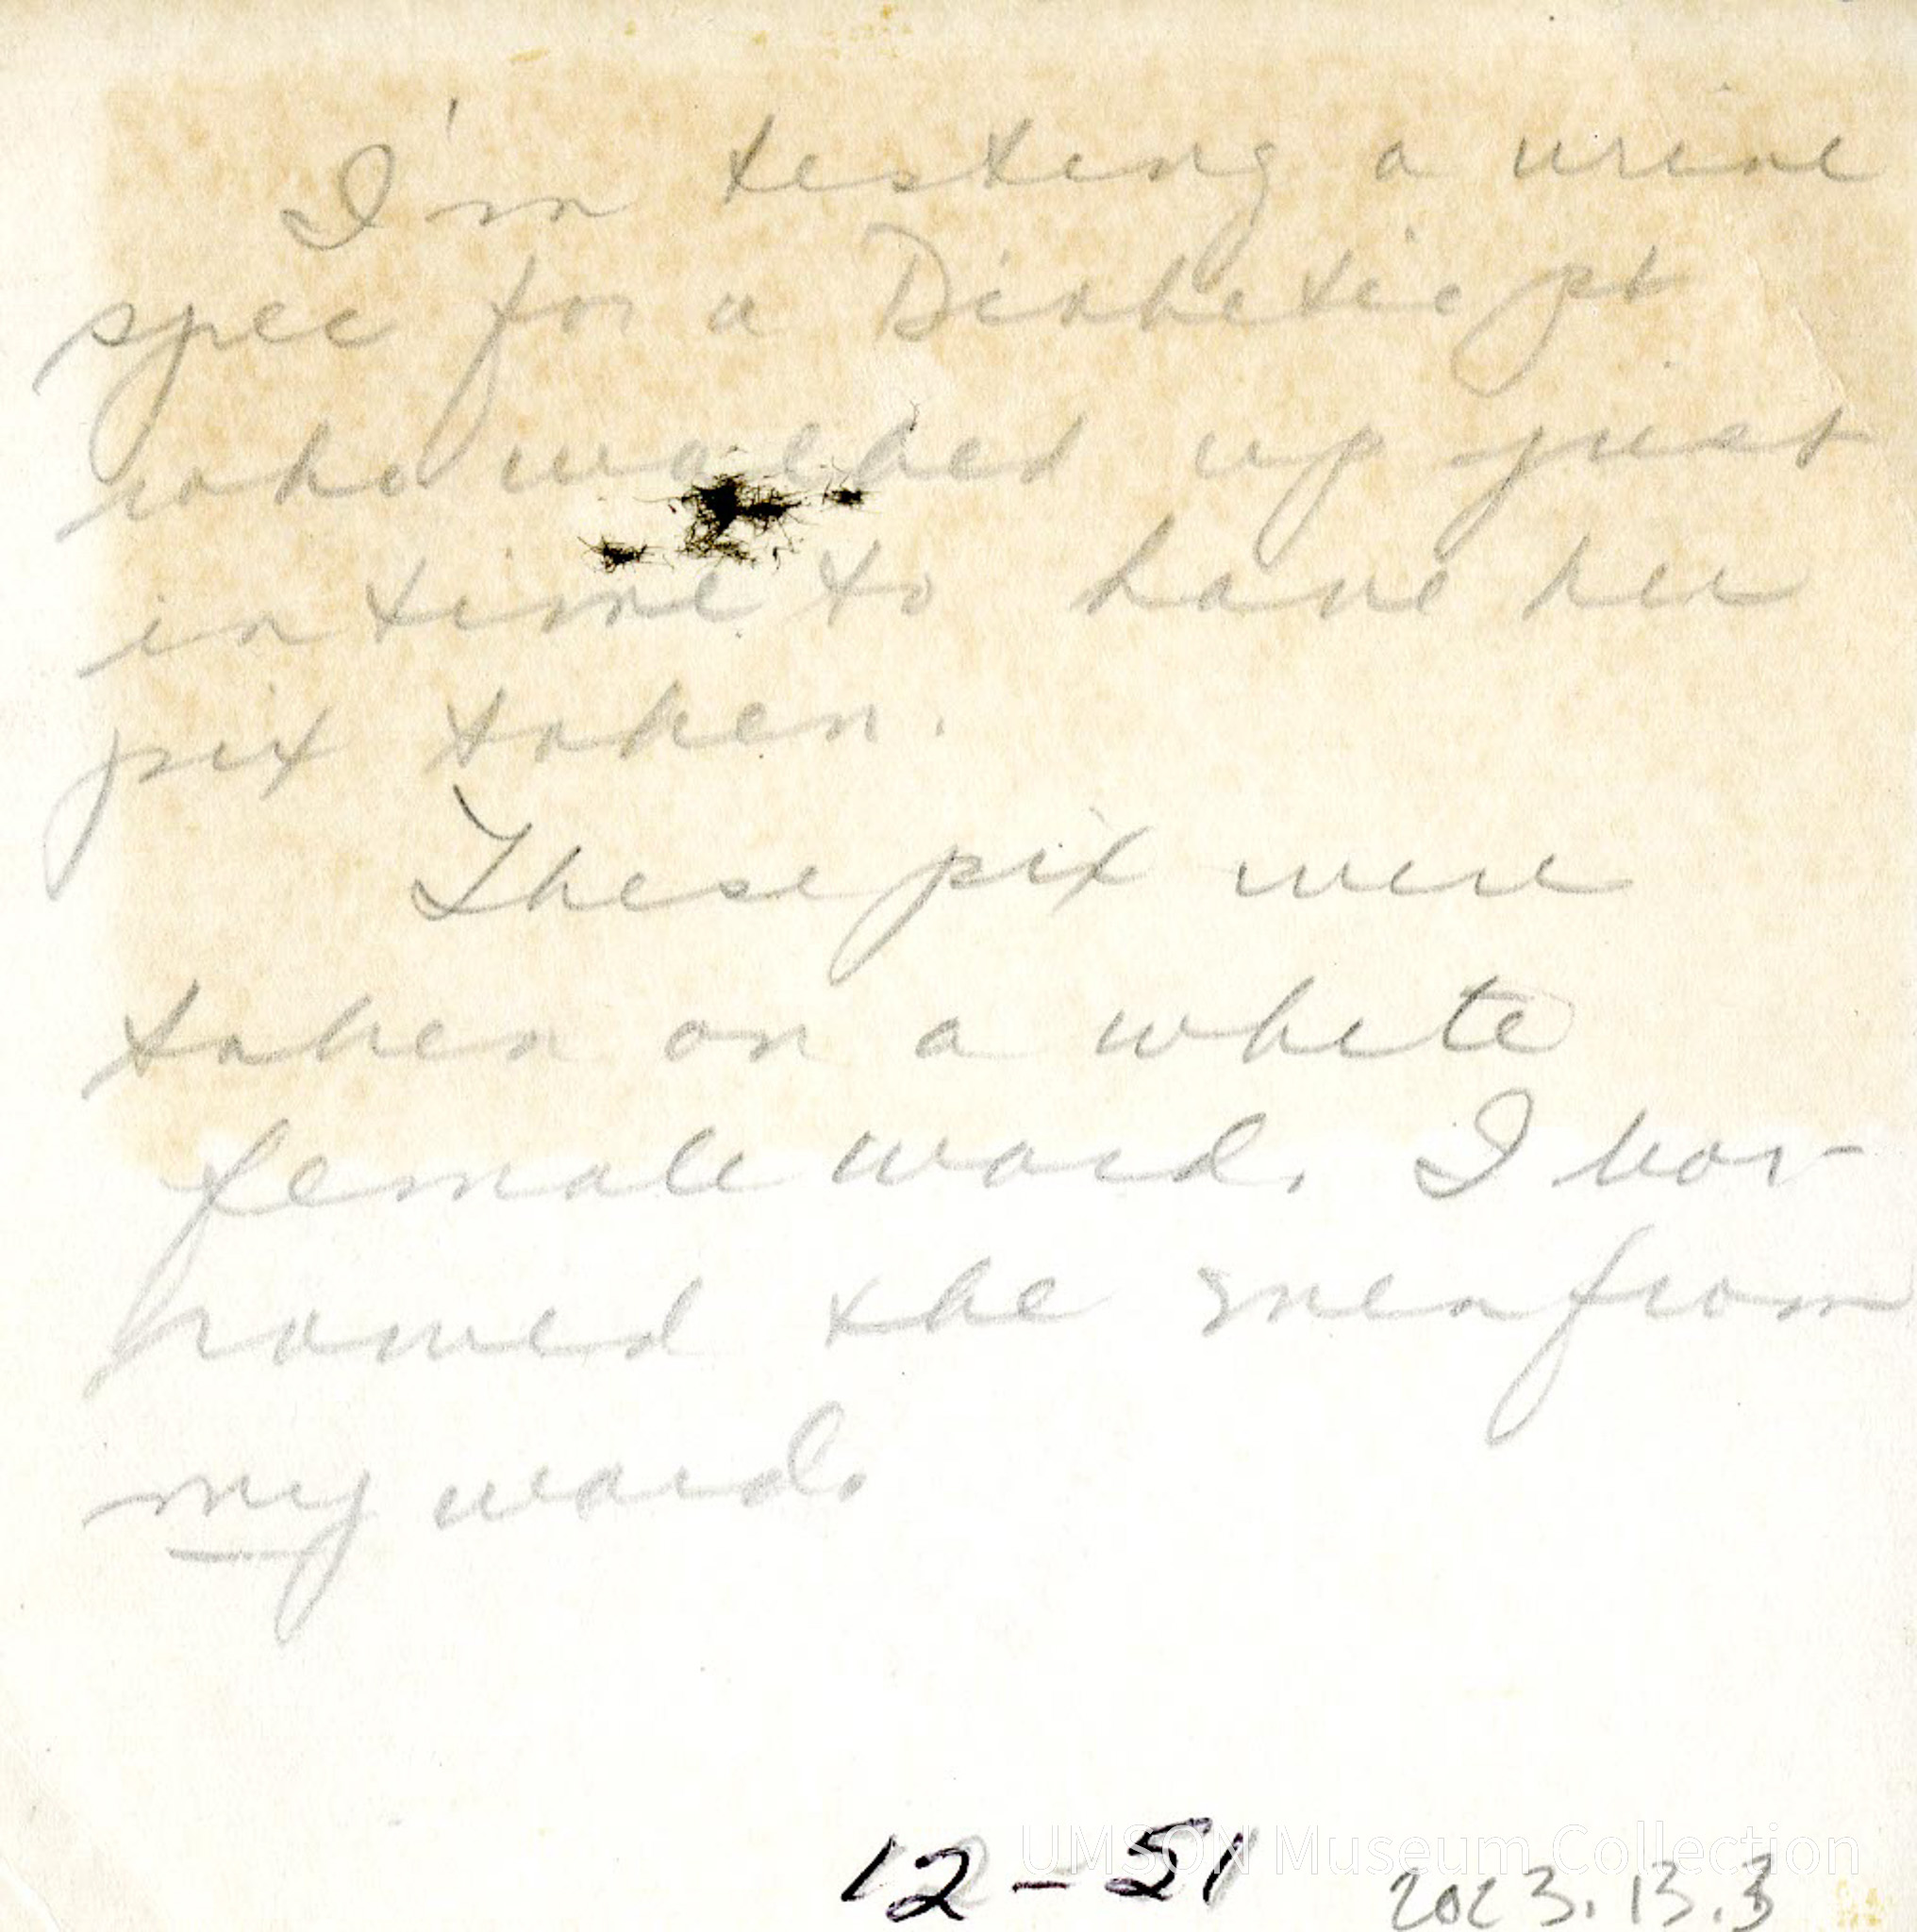 I'm testing a urine
spec for a Diabetic pt
who walked up just
in time to have her
pix taken.
These pix were
taken on a white
female ward. I bor-
rowed the men from
my ward.
12-51
UMSON Museum Collection
2023.13.3